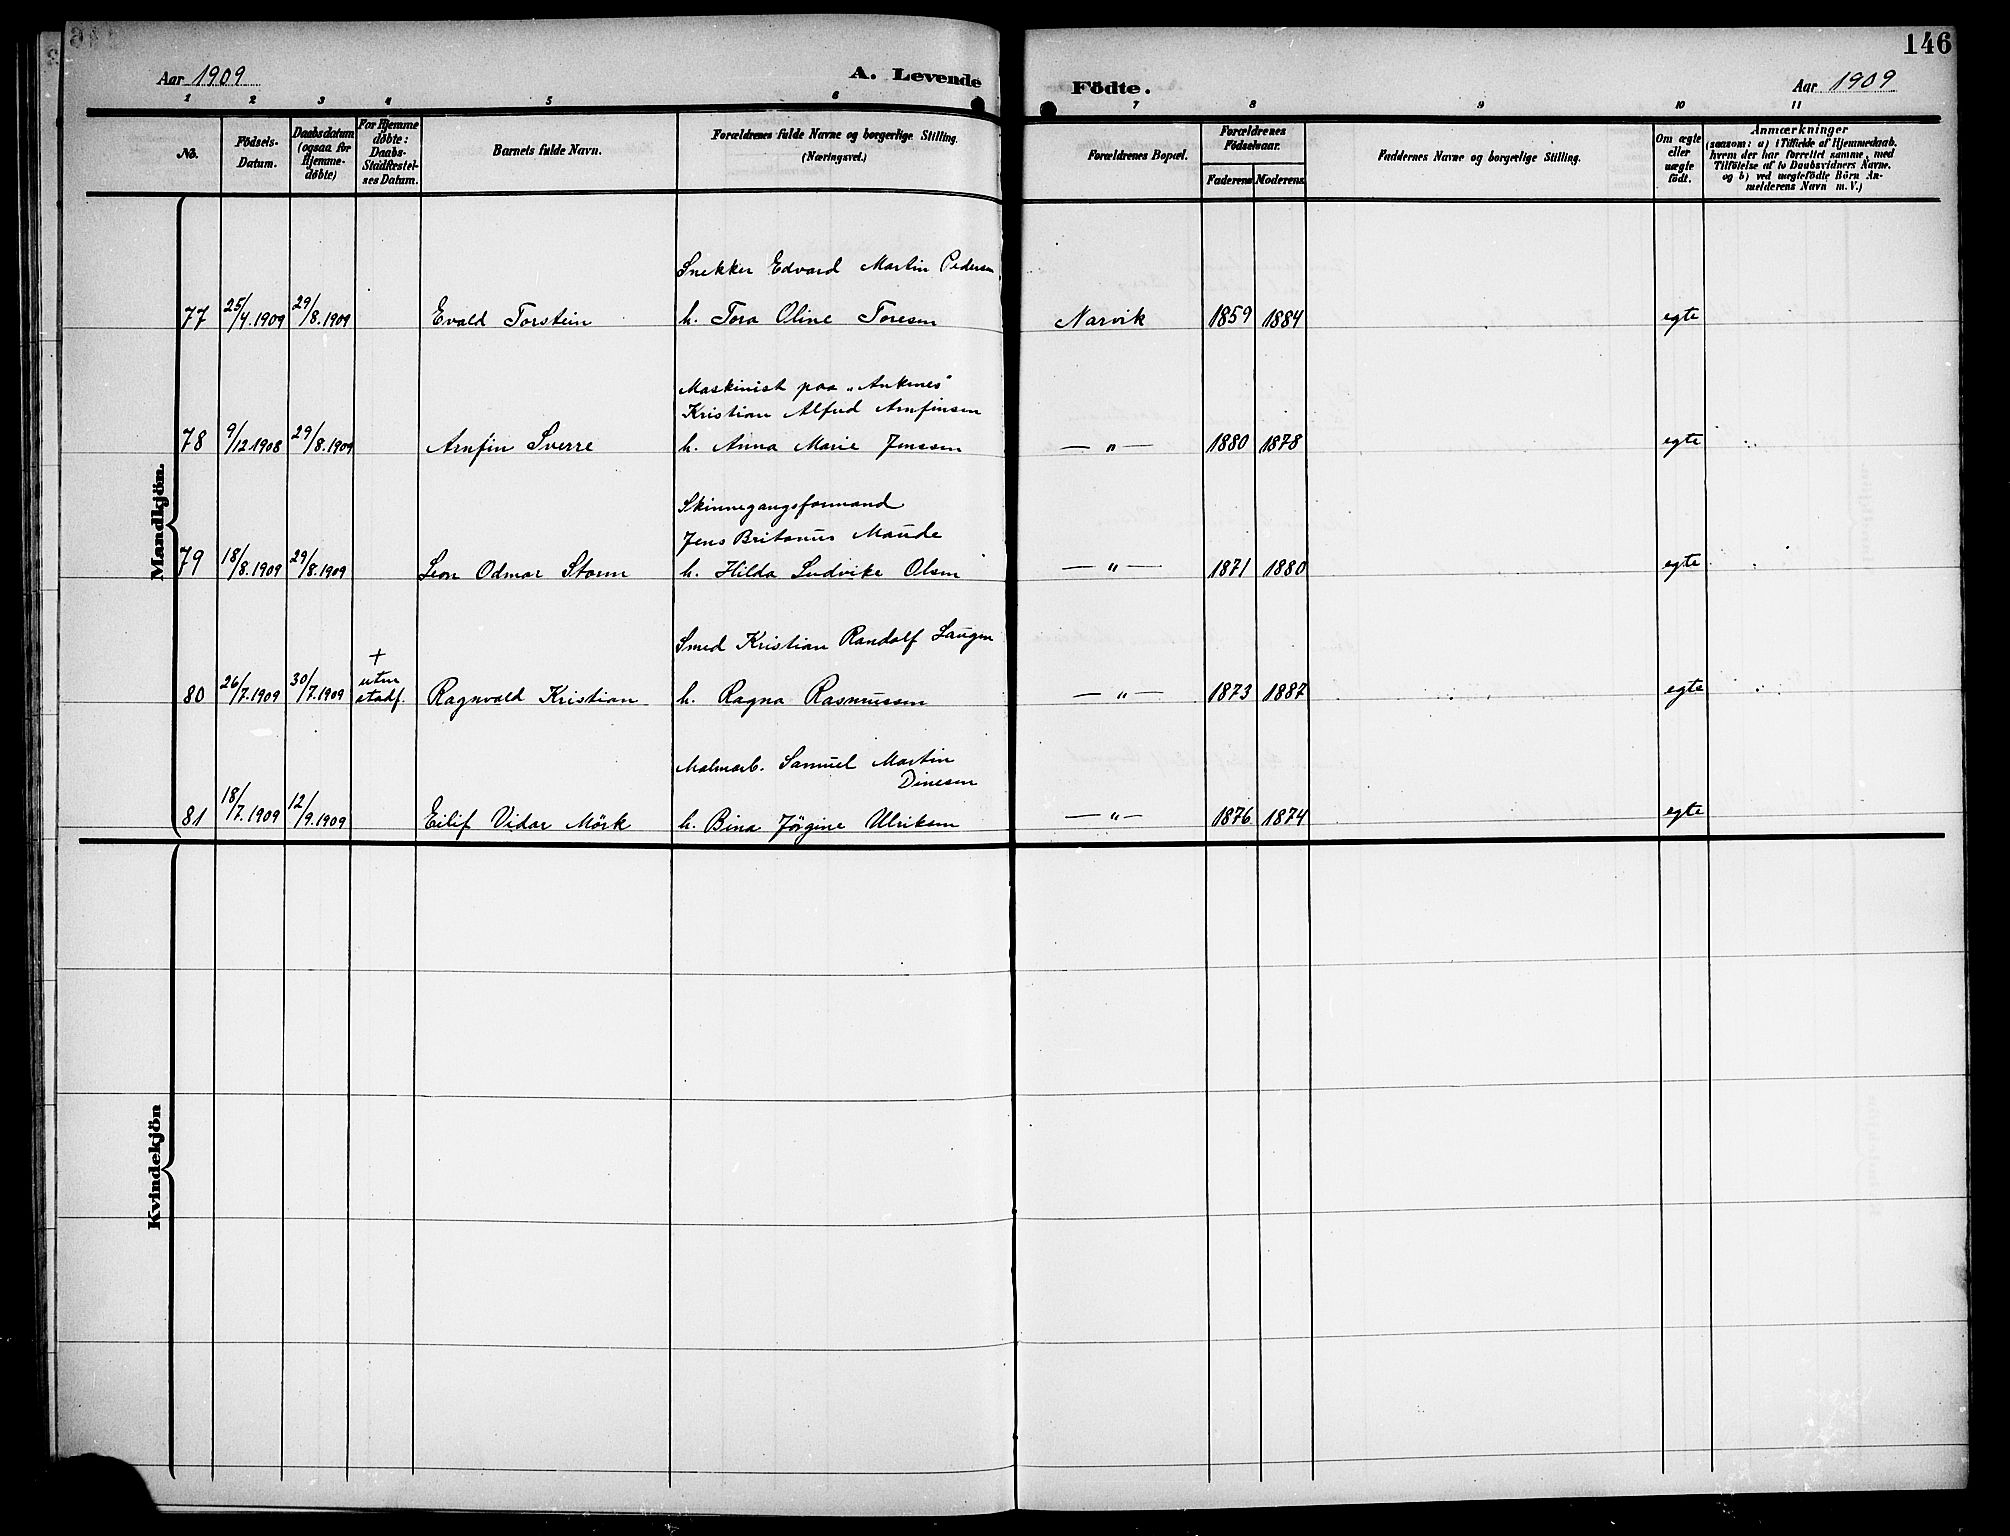 146
Aar 1909
A. Levende Födte.
Aar 1909
1 2 3 4 5 6 7 8 9 10 11
No.
Födsels-
Datum.
Daabsdatum
(ogsaa for
Hjemme-
døbte)
For Hjemme
døbte:
Daabs-
Stadfæstel-
ses Datum.
Barnets fulde Navn.
Forældrenes fulde Navne og borgerlige Stilling.
(Næringsvei.)
Forældrenes Bopæl.
Forældrenes
Födselsaar.
Faderens Moderens
Faddernes Navne og borgerlige Stilling.
Om ægte
eller
uægte
född.
Anmærkninger
(saasom: a) i Tilfælde af Hjemmedaab.
hvem der har forrettet samme, med
Tilföielse af to Daabsvidners Navne.
og b) ved uægtefödte Börn An-
melderens Navn m. V.)
Mandkjön.
Snekker Edvard Martin Pedersen
77 25/4.1909 29/8.1909 Evald Torstein h. Tora Oline Toresen Narvik 1859 1884 egte
Maskinist paa „Ankenes"
Kristian Alfred Arnfinsen
78 9/12.1908 29/8.1909 Arnfin Sverre h. Anna Marie Jenssen — " — 1880 1878 egte
Skinnegangsformand
Jens Britanus Maude
79 18/8.1909 29/8.1909 Leon Odmar Storm h. Hilda Ludvike Olsen — " — 1871 1880 egte
Smed Kristian Randolf Laugen
+
uten
80 26/7.1909 30/7.1909 stadf. Ragnvald Kristian h. Ragna Rasmussen — " — 1873 1887 egte
Malmarb. Samuel Martin
Dinesen
81 18/7.1909 12/9.1909 Eilif Vidar Mörk h. Bina Jörgine Ulriksen — " — 1876 1874 egte
Kvindekjön